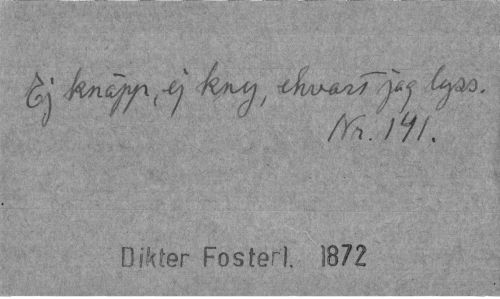 Ej knäpp, ej kny, ehvart jag lyss.
Nr. 141.
Dikter Fosterl. 1872